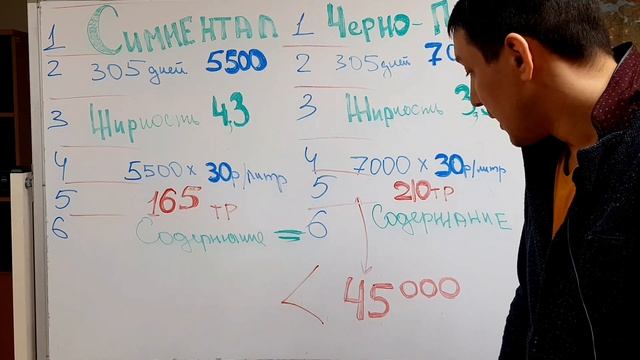 1 Симментал
2 305 дней 5500
3 Жирность 4,3
4 5500 х 30р/литр
5 165 тр
6 Содержание =
1 Черно-П
2 305 дней 70
3 Жирность 3,
4 7000 х 30р/литр
5 210тр
6 Содержание
< 45000